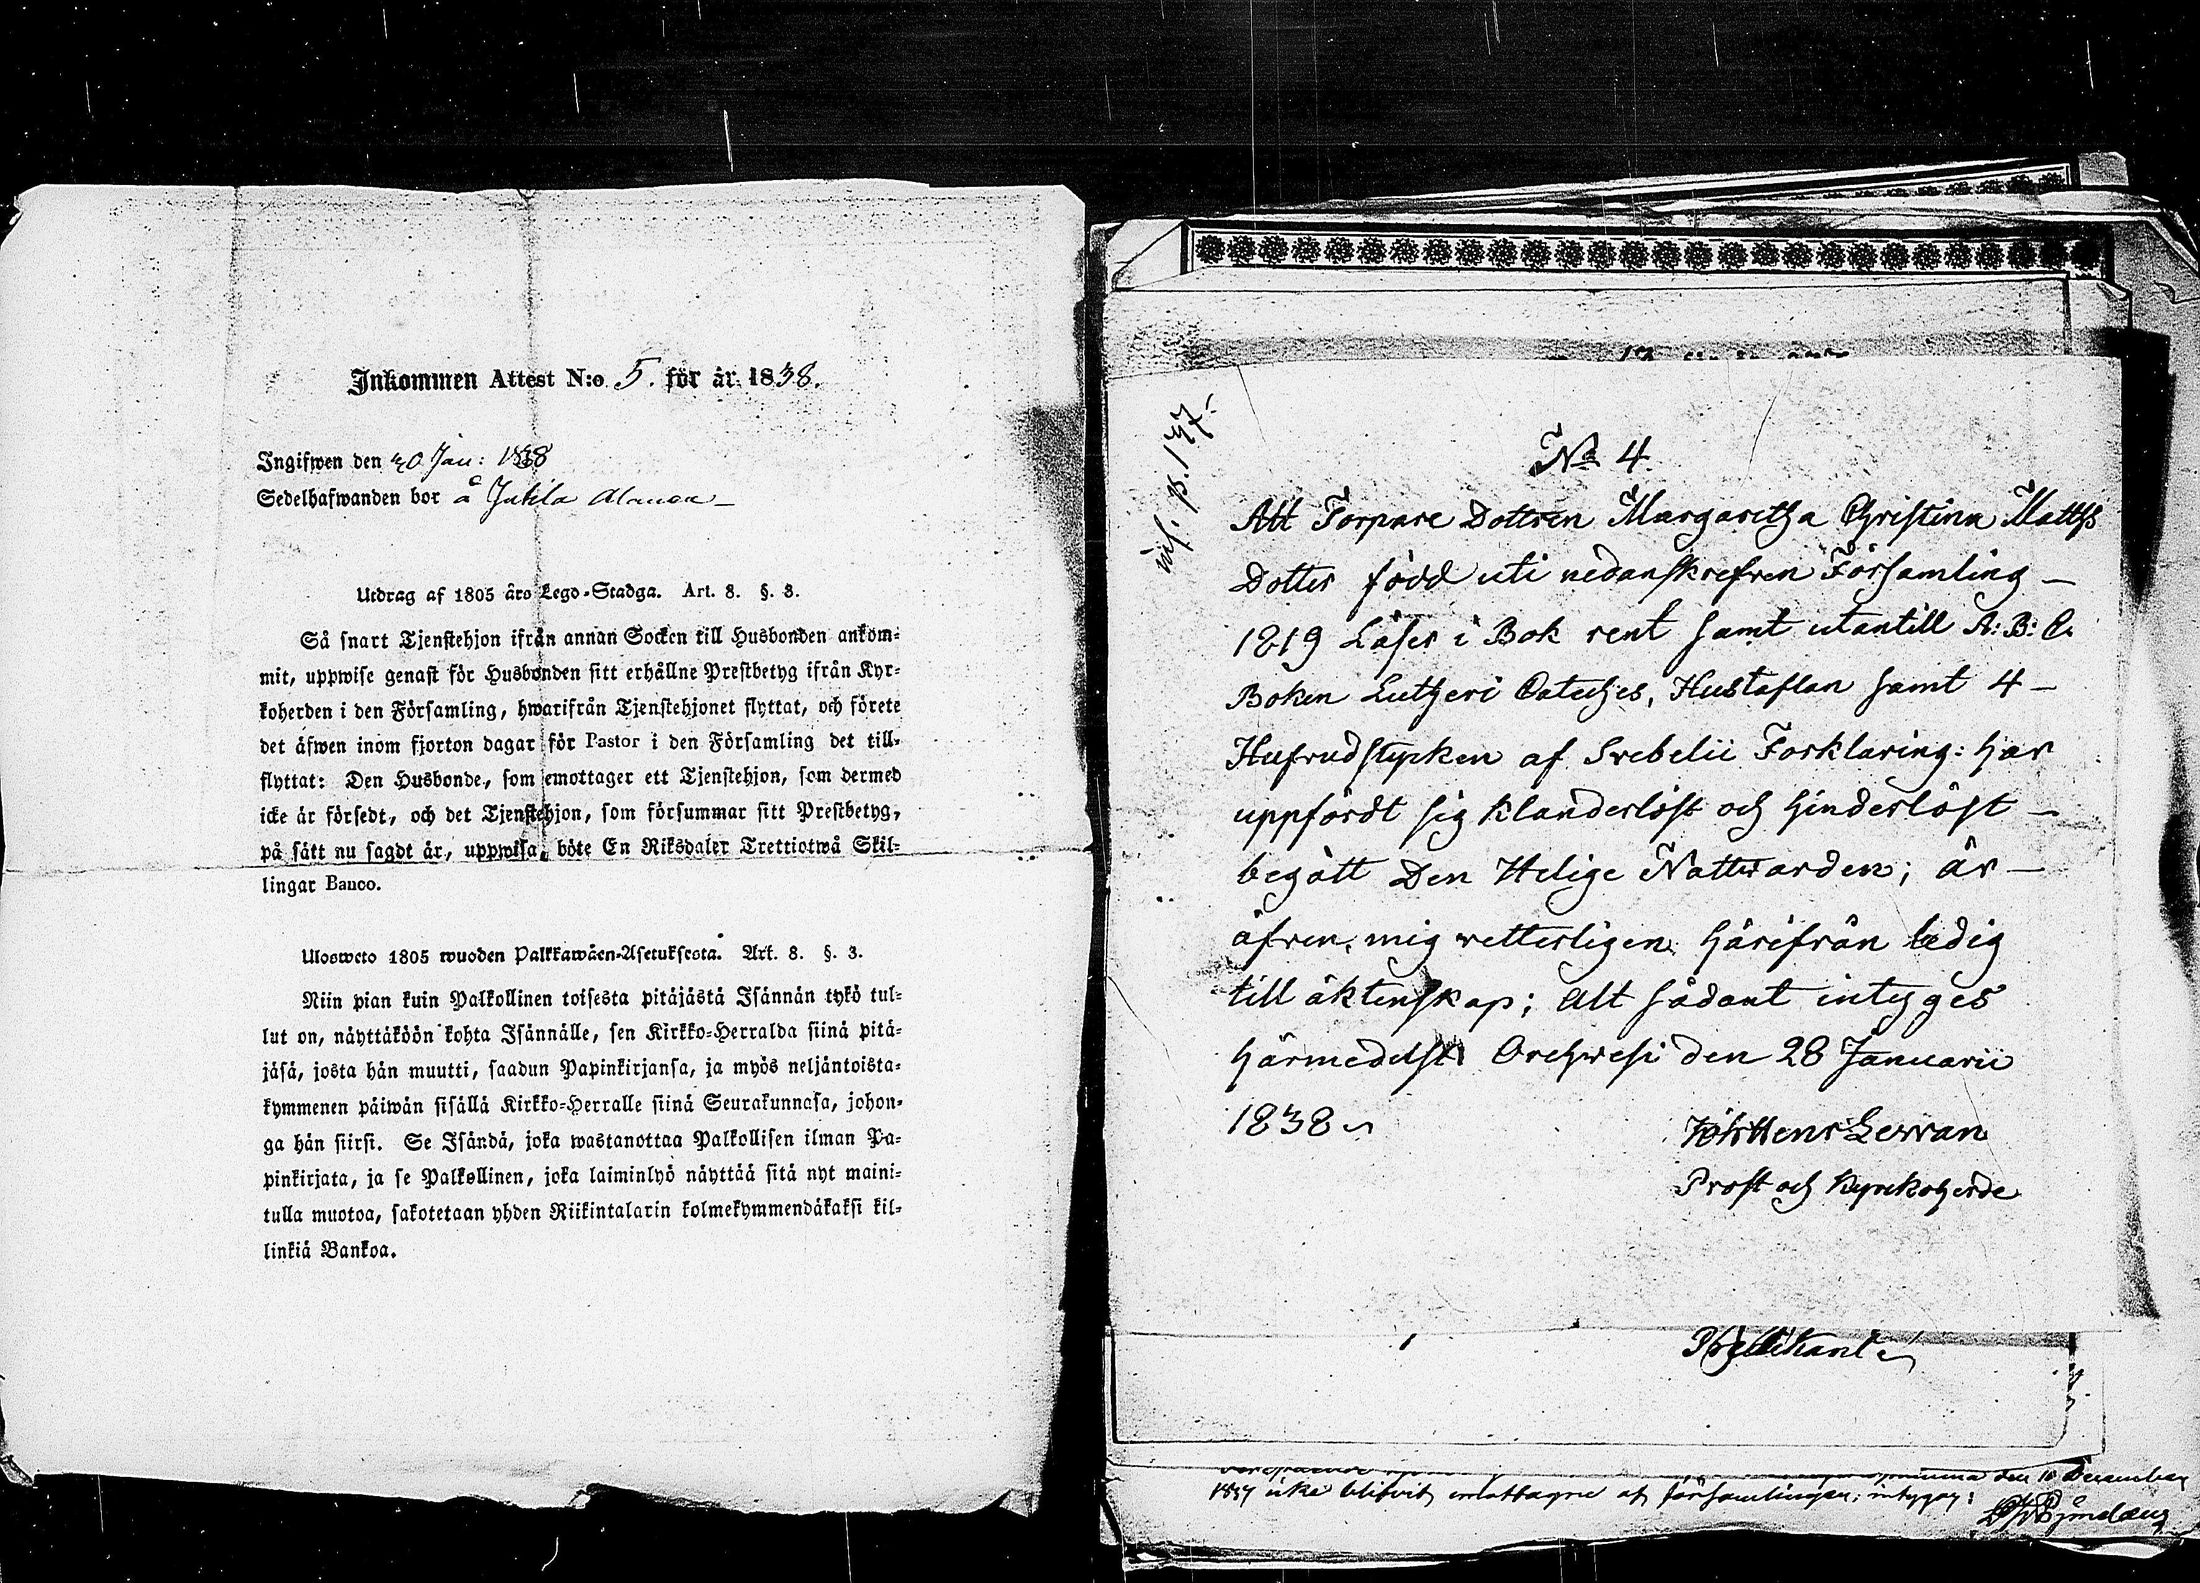 Inkommen Attest N:o 5. för år 1838.
Ingifwen den 30 Jan: 1838
Sedelhafwanden bor å Jutila
Utdrag af 1805 års Lego-Stadga. Art. 8. §. 3.
Så snart Tjenstehjon ifrån annan Socken till Husbonden ankom-
mit, uppwise genast för Husbonden sitt erhållne Prestbetyg ifrån Kyr-
koherden i den Församling, hwarifrån Tjenstehjonet flyttat, och förete
det äfwen inom fjorton dagar för Pastor i den Församling det till-
flyttat: Den Husbonde, som emottager ett Tjenstehjon, som dermed
icke är försedt, och det Tjenstehjon, som försummar sitt Prestbetyg,
på sätt nu sagdt är, uppwisa, böte En Riksdaler Trettiotwå Skil-
lingar Banco.
Ulosweto 1805 wuoden Palkkawäen-Asetuksesta. Art. 8. §. 3.
Niin pian kuin Palkollinen toisesta pitäjästä Isännän tykö tul-
lut on, näyttäköön kohta Isännälle, sen Kirkko-Herralda siinä pitä-
jäsä, josta hän muutti, saadun Papinkirjansa, ja myös neljäntoista-
kymmenen päiwän sisällä Kirkko-Herralle siinä Seurakunnasa, johon-
ga hän siirsi. Se Isändä, joka wastanottaa Palkollisen ilman Pa-
pinkirjata, ja se Palkollinen, joka laiminlyö näyttää sitä nyt maini-
tulla muotoa, sakotetaan yhden Riikintalarin kolmekymmendäkaksi kil-
linkiä Bankoa.
p. 137.
No 4
Att Torpare Dottren Margaretha Christina Matths
Dotter född uti nedanskrefven Församling
1819 Läser i Bok rent samt utantill A: B: C.
Boken Lutheri Cateches, Hustaflan samt 4
Hufvudstycken af Svebelii Forklaring: har
uppfördt sig klanderlöst och hinderlöst
begått Den Helige Nattvarden; är
äfven, mig vetterligen, härifrån ledig
till äktenskap; Alt sådant intyges
härmedelst Orehvesi den 28 Januarii
1838
Prost och Kyrckoherde
den 10 December
1837 icke blifvit emottagne af församlingen; intygar: